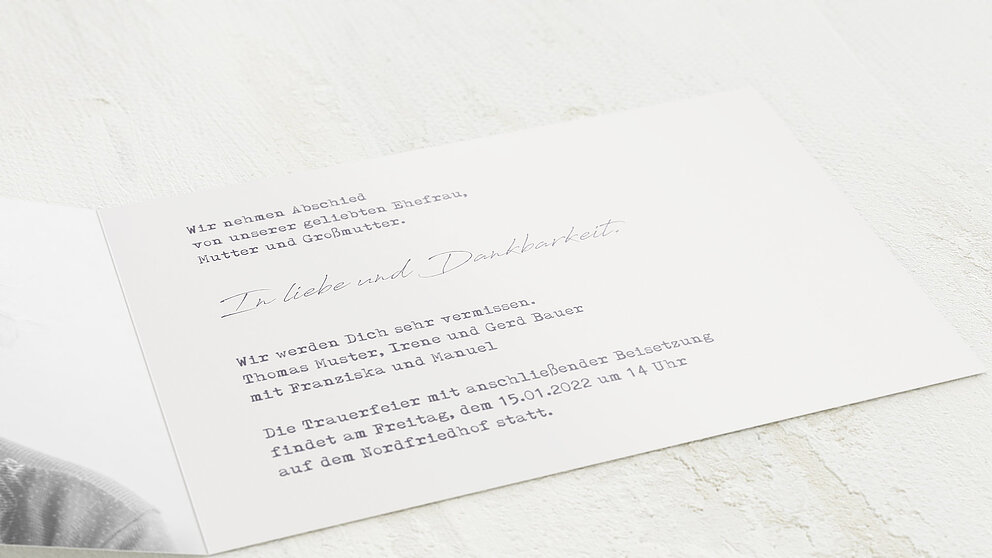 Wir nehmen Abschied
von unserer geliebten Ehefrau,
Mutter und Großmutter.
In liebe und Dankbarkeit.
Wir werden Dich sehr vermissen.
Thomas Muster, Irene und Gerd Bauer
mit Franziska und Manuel
Die Trauerfeier mit anschließender Beisetzung
findet am Freitag, dem 15.01.2022 um 14 Uhr
auf dem Nordfriedhof statt.